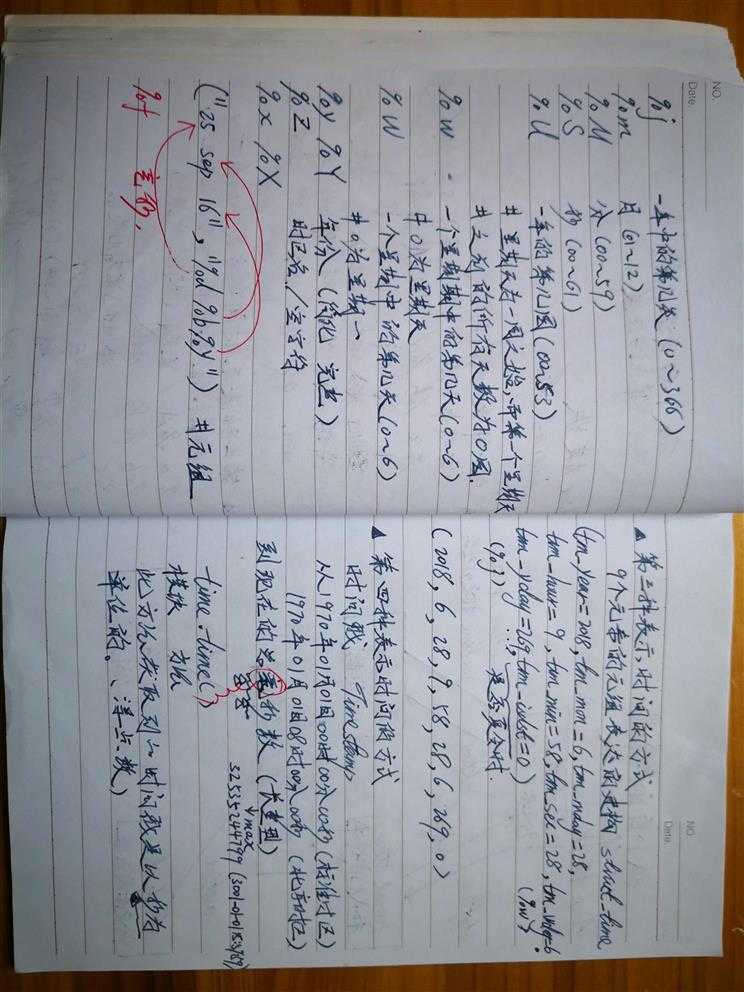 NO.
Date.
%j 一年中的第几天 (0~366)
%m 月 (01~12)
%M 分 (00~59)
%S 秒 (00~61)
%U 一年的第几周 (00~53)
# 星期天为一周之始,
# 之前的所有天数为0周.
%w - 一个星期中的第几天 (0~6)
# 0为星期天
%W 一个星期中的第几天 (0~6)
# 0为星期一
%y %Y 年份 (简化 完整)
%Z 时区名/空字符
%x %X
("25 sep 16", "%d %b %y") #元组
%f 毫秒.
NO
Date.
▲ 第三种表示时间的方式
9个元素的元组表达的结构 struct_time
(tm_year=2018, tm_mon=6, tm_mday=28,
tm_hour=9, tm_min=58, tm_sec=28, tm_wd=6
tm_yday=269, tm_isdst=0)
(%j)
是否夏令时.
(2018, 6, 28, 9, 58, 28, 6, 269, 0)
▲ 第四种表示时间的方式
时间戳 Timestamp
从1970年01月01日00时00分00秒 (标准时区)
1970年01月01日08时00分00秒 (北京时区)
到现在的总毫秒数 (长整型)
max
32535244799
time.time()
模块 方法
此方法获取到的时间戳是以秒为
单位的. (浮点数)